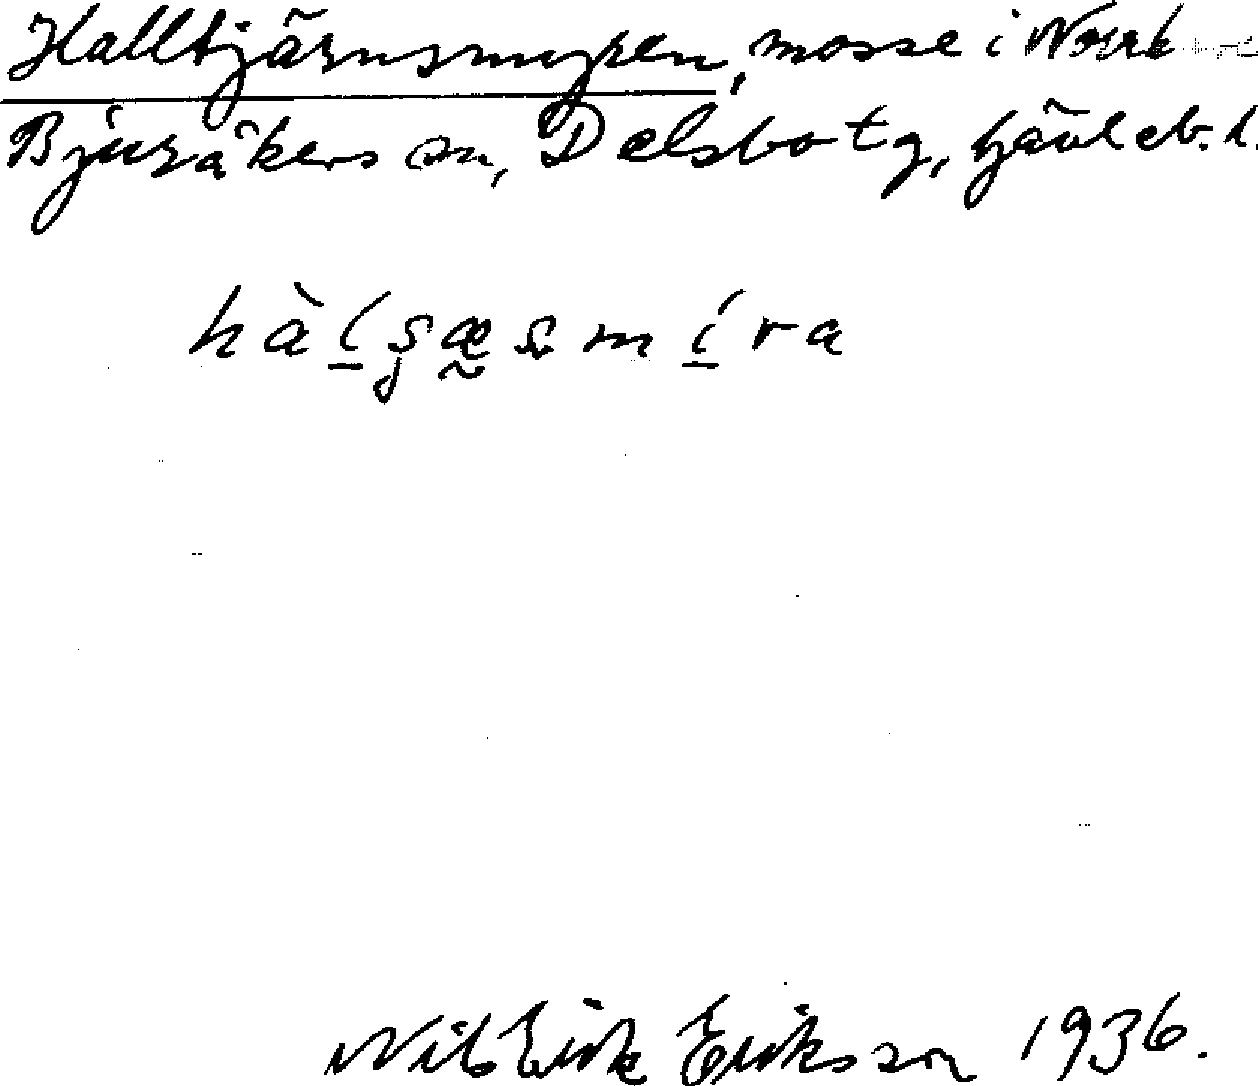 Halltjärnsmyren, mosse i
Bjuråkers sn, Delsbo tg, Gävleb. l.
Nils Erik Eriksson 1936.